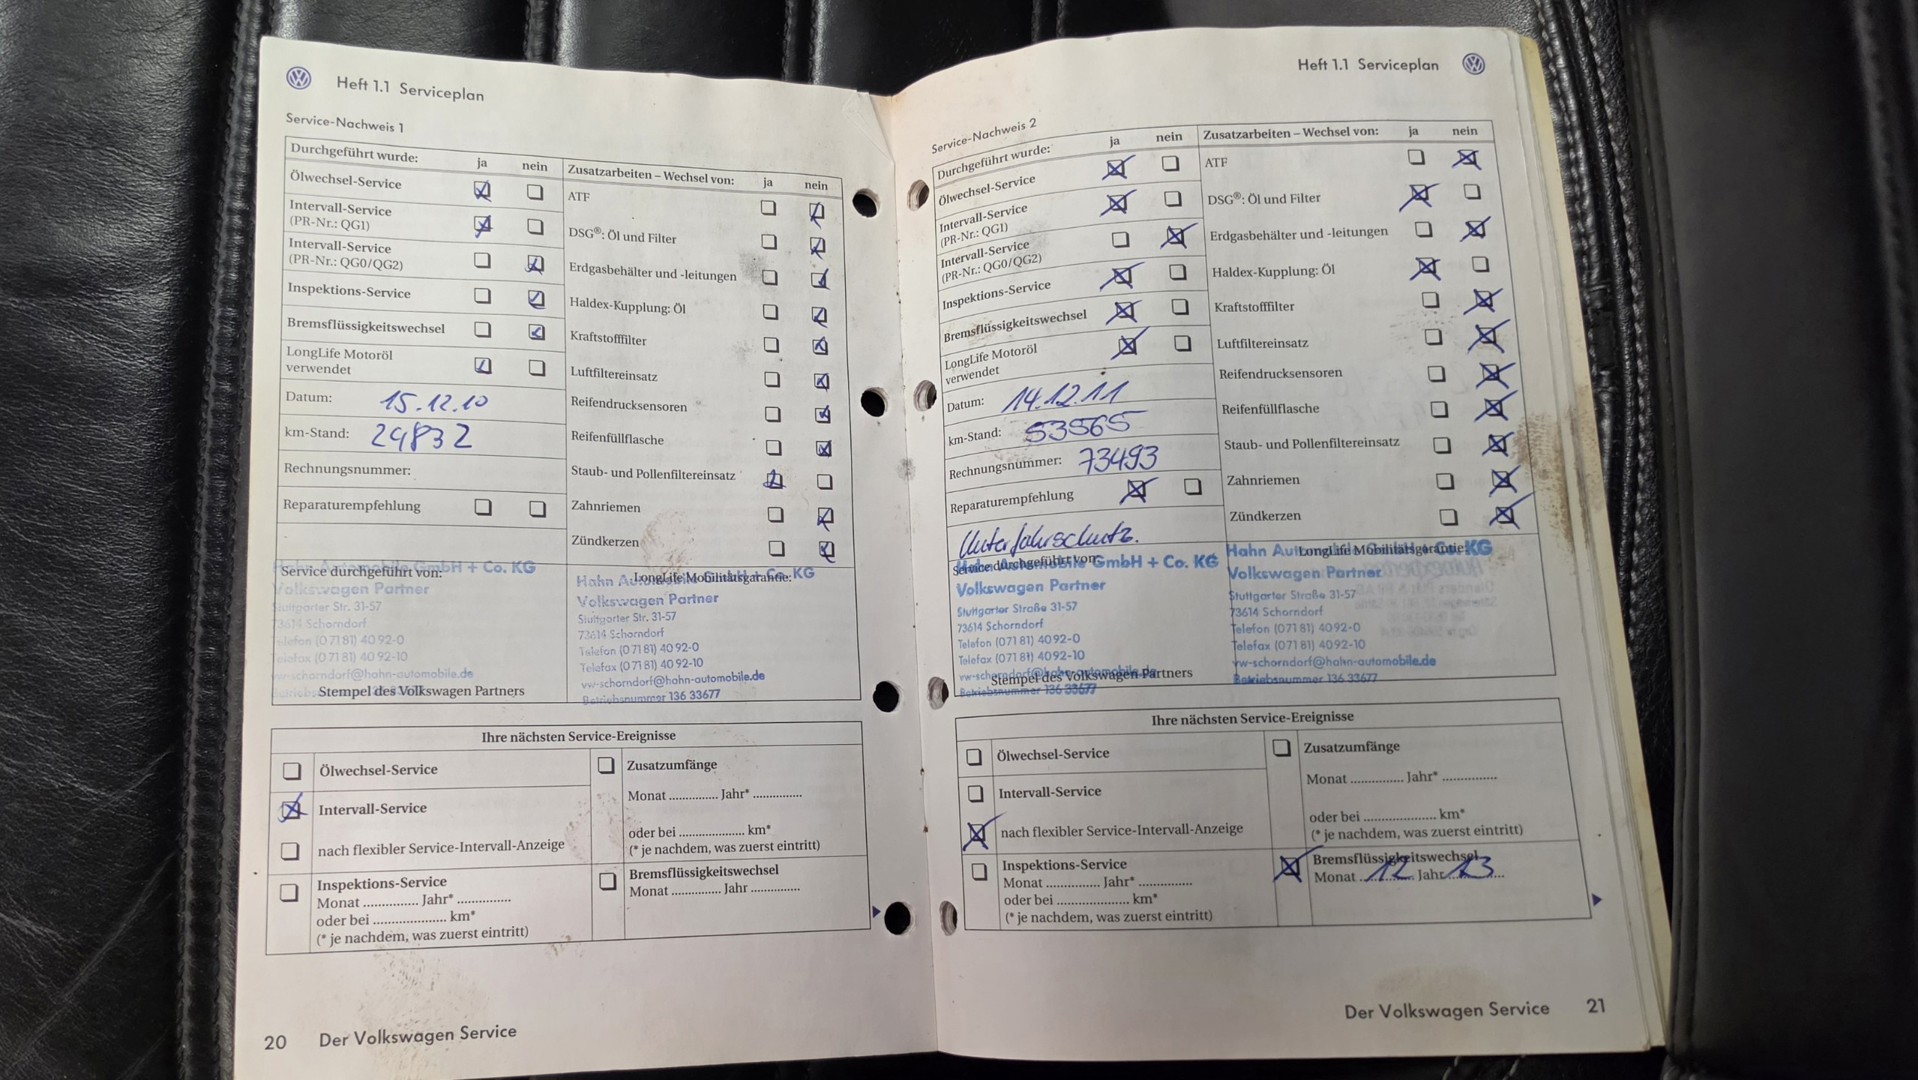 Heft 1.1 Serviceplan
Service-Nachweis 1
Durchgeführt wurde: ja nein
Ölwechsel-Service
Intervall-Service
(PR-Nr.: QG1)
Intervall-Service
(PR-Nr.: QG0/QG2)
Inspektions-Service
Bremsflüssigkeitswechsel
LongLife Motoröl
verwendet
Datum: 15.12.10
km-Stand: 29832
Rechnungsnummer:
Reparaturempfehlung
Zusatzarbeiten – Wechsel von: ja nein
ATF
DSG®: Öl und Filter
Erdgasbehälter und -leitungen
Haldex-Kupplung: Öl
Kraftstofffilter
Luftfiltereinsatz
Reifendrucksensoren
Reifenfüllflasche
Staub- und Pollenfiltereinsatz
Zahnriemen
Zündkerzen
Service durchgeführt von:
Hahn Automobile GmbH + Co. KG
Volkswagen Partner
Stuttgarter Str. 31-57
73614 Schorndorf
Telefon (0 71 81) 40 92-0
Telefax (0 71 81) 40 92-10
vw-schorndorf@hahn-automobile.de
Stempel des Volkswagen Partners
LongLife Mobilitätsgarantie:
Hahn Automobile GmbH + Co. KG
Volkswagen Partner
Stuttgarter Str. 31-57
73614 Schorndorf
Telefon (0 71 81) 40 92-0
Telefax (0 71 81) 40 92-10
vw-schorndorf@hahn-automobile.de
Betriebsnummer 136 33677
Ihre nächsten Service-Ereignisse
Ölwechsel-Service
Intervall-Service
nach flexibler Service-Intervall-Anzeige
Inspektions-Service
Monat ............... Jahr* ...............
oder bei .................... km*
(* je nachdem, was zuerst eintritt)
Zusatzumfänge
Monat ............. Jahr* .............
oder bei .................... km*
(* je nachdem, was zuerst eintritt)
Bremsflüssigkeitswechsel
Monat ............. Jahr .............
20 Der Volkswagen Service
Heft 1.1 Serviceplan
Service-Nachweis 2
Durchgeführt wurde: ja nein
Ölwechsel-Service
Intervall-Service
(PR-Nr.: QG1)
Intervall-Service
(PR-Nr.: QG0/QG2)
Inspektions-Service
Bremsflüssigkeitswechsel
LongLife Motoröl
verwendet
Datum: 14.12.11
km-Stand: 53565
Rechnungsnummer: 73493
Reparaturempfehlung
Unterfahrschutz.
Zusatzarbeiten – Wechsel von: ja nein
ATF
DSG®: Öl und Filter
Erdgasbehälter und -leitungen
Haldex-Kupplung: Öl
Kraftstofffilter
Luftfiltereinsatz
Reifendrucksensoren
Reifenfüllflasche
Staub- und Pollenfiltereinsatz
Zahnriemen
Zündkerzen
Service durchgeführt von:
Hahn Automobile GmbH + Co. KG
Volkswagen Partner
Stuttgarter Straße 31-57
73614 Schorndorf
Telefon (0 71 81) 40 92-0
Telefax (0 71 81) 40 92-10
vw-schorndorf@hahn-automobile.de
Stempel des Volkswagen Partners
Betriebsnummer 136 33677
LongLife Mobilitätsgarantie:
Hahn Automobile GmbH + Co. KG
Volkswagen Partner
Stuttgarter Straße 31-57
73614 Schorndorf
Telefon (0 71 81) 40 92-0
Telefax (0 71 81) 40 92-10
vw-schorndorf@hahn-automobile.de
Betriebsnummer 136 33677
Ihre nächsten Service-Ereignisse
Ölwechsel-Service
Intervall-Service
nach flexibler Service-Intervall-Anzeige
Inspektions-Service
Monat ............... Jahr* ...............
oder bei .................... km*
(* je nachdem, was zuerst eintritt)
Zusatzumfänge
Monat ............... Jahr* ...............
oder bei .................... km*
(* je nachdem, was zuerst eintritt)
Bremsflüssigkeitswechsel
Monat 12 Jahr 13
Der Volkswagen Service 21